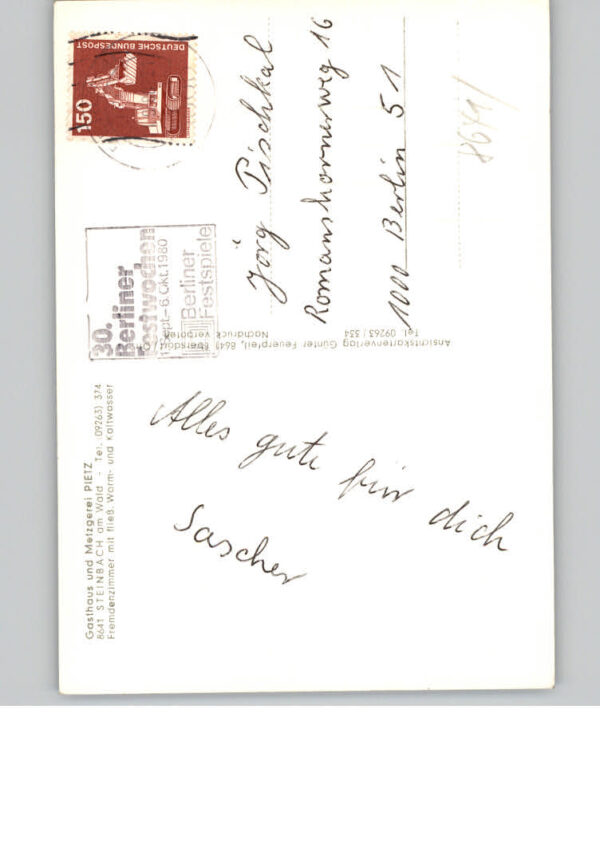 Gasthaus und Metzgerei PIETZ
8641 STEINBACH am Wald - Tel. (09263) 374
Fremdenzimmer mit fließ. Warm- und Kaltwasser
30.
Berliner
Festwochen
Sept.-6.Okt.1980
Berliner
Festspiele
150
DEUTSCHE BUNDESPOST
Alles gute für dich
Sascher
Ansichtskartenverlag Günter Feuerpfeil, 8641
Tel. 09263 / 334
Nachdruck verboten
Jörg Pischkal
Romanshornerweg 16
1000 Berlin 51
8641/